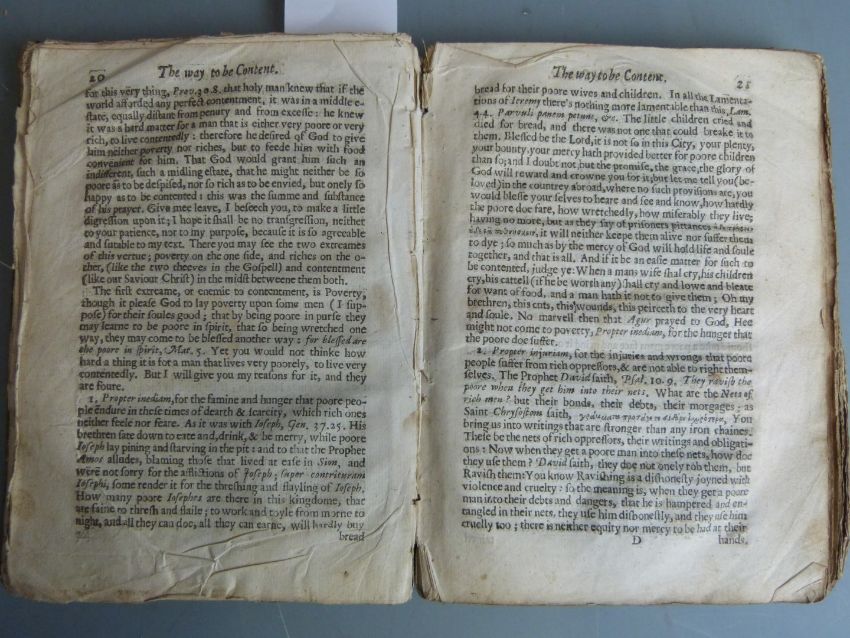 20
The way to be Content.
for this very thing, Prov. 30.8. that holy man knew that if the
world afforded any perfect contentment, it was in a middle e-
state, equally distant from penury and from excesse: he knew
it was a hard matter for a man that is either very poore or very
rich, to live contentedly: therefore he desired of God to give
him neither poverty nor riches, but to feede him with food
convenient for him. That God would grant him such an
indifferent, such a midling estate, that he might neither be so
poore as to be despised, nor so rich as to be envied, but onely so
happy as to be contented: this was the summe and substance
of his prayer. Give mee leave, I beseech you, to make a little
digression upon it; I hope it shall be no transgression, neither
to your patience, nor to my purpose, because it is so agreeable
and sutable to my text. There you may see the two extreames
of this vertue; poverty on the one side, and riches on the o-
ther, (like the two theeves in the Gospell) and contentment
(like our Saviour Christ) in the midst betweene them both.
The first extreame, or enemie to contentment, is Poverty,
though it please God to lay poverty upon som men (I sup-
pose) for their soules good; that by being poore in purse they
may learne to be poore in spirit, that so being wretched one
way, they may come to be blessed another way: for blessed are
the poore in spirit, Mat. 5. Yet you would not thinke how
hard a thing it is for a man that lives very poorely, to live very
contentedly. But I will give you my reasons for it, and they
are foure.
1. Propter inediam, for the famine and hunger that poore peo-
ple endure in these times of dearth & scarcity, which rich ones
neither feele nor feare. As it was with Ioseph, Gen. 37.25. His
brethren sate down to eate and, drink, & be merry, while poore
Ioseph lay pining and starving in the pit: and to that the Prophet
Amos alludes, blaming those that lived at ease in Sion, and
were not sorry for the afflictions of Ioseph; super contrituram
Iosephi, some render it for the threshing and flayling of Ioseph.
How many poore Iosephes are there in this kingdome, that
are faine to thresh and flaile; to work and toyle from morne to
night, and all they can doe, all they can earne, will hardly buy
bread
The way to be Content.
21
bread for their poore wives and children. In all the Lamenta-
tions of Ieremy there's nothing more lamentable than this, Lam.
4.4. Parvuli panem petunt, &c. The little children cried and
died for bread, and there was not one that could breake it to
them. Blessed be the Lord, it is not so in this City, your plenty,
your bounty, your mercy hath provided better for poore children
than so; and I doubt not but the promise, the grace, the glory of
God will reward and crowne you for it; but let me tell you (be-
loved) in the countrey abroad, where no such provisions are, you
would blesse your selves to heare and see and know, how hardly
the poore doe fare, how wretchedly, how miserably they live;
having no more, but as they say of prisoners pittances
it will neither keepe them alive nor suffer them
to dye; so much as by the mercy of God will hold life and soule
together, and that is all. And if it be an easie matter for such to
be contented, judge ye: When a mans wife shal cry, his children
cry, his cattell (if he be worth any) shall cry and lowe and bleate
for want of food, and a man hath it not to give them; Oh my
brethren, this cuts, this wounds, this peirceth to the very heart
and soule. No marvell then that Agur prayed to God, Hee
might not come to poverty, Propter inediam, for the hunger that
the poore doe suffer.
2. Propter injuriam, for the injuries and wrongs that poore
people suffer from rich oppressors, & are not able to right them-
selves. The Prophet David saith, Psal. 10. 9. They ravish the
poore when they get him into their nets. What are the Nets of
rich men? but their bonds, their debts, their morgages; as
Saint Chrysostom saith, You
bring us into writings that are stronger than any iron chaines.
These be the nets of rich oppressors, their writings and obligati-
ons: Now when they get a poore man into these nets, how doe
they use them? David saith, they doe not onely rob them, but
Ravish them: You know Ravishing is a dishonesty joyned with
violence and cruelty: so the meaning is, when they get a poore
man into their debts and dangers, that he is hampered and en-
tangled in their nets, they use him dishonestly, and they use him
cruelly too; there is neither equity nor mercy to be had at their
D
hands.